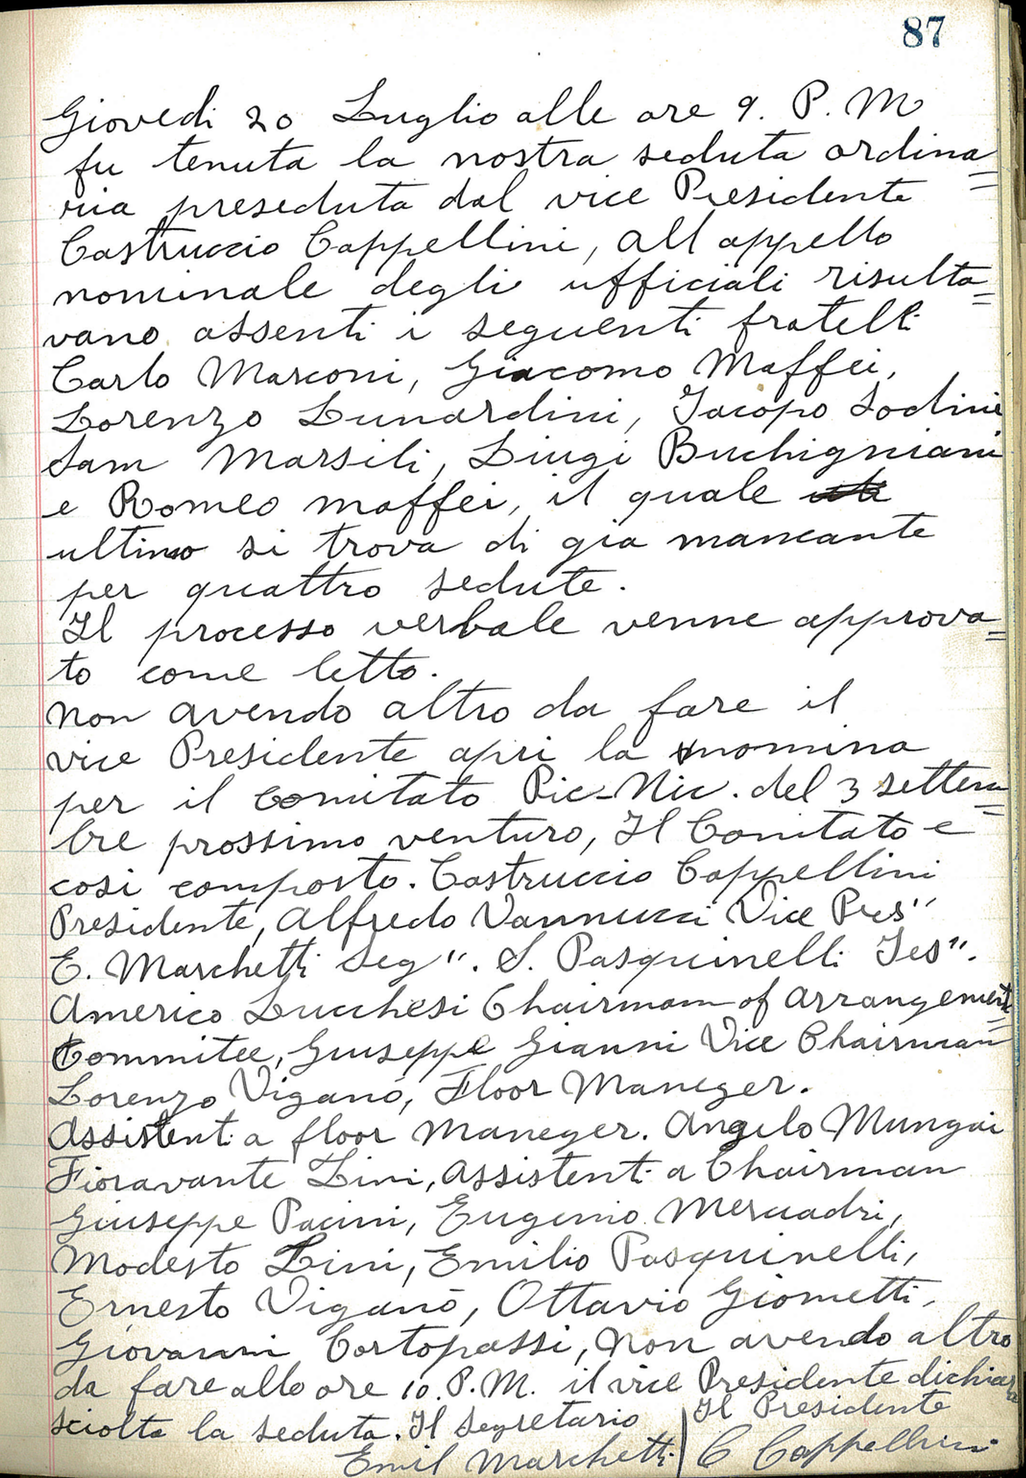 87
Giovedi 20 Luglio alle ore 9. P. M
fu tenuta la nostra seduta ordina=
ria preseduta dal vice Presidente
Castruccio Cappellini, all appello
nominale degli ufficiali risulta=
vano assenti i seguenti fratelli
Carlo Marconi, Giacomo Maffei,
Lorenzo Lunardini, Jacopo Sodini
Sam Marsili, Liugi Buchigniani
e Romeo Maffei, il quale
ultimo si trova di gia mancante
per quattro sedute.
Il processo verbale venne approva=
to come letto.
Non avendo altro da fare il
vice Presidente apri la nomina
per il comitato Pic-Nic. del 3 settem=
bre prossimo venturo, Il Comitato e
cosi composto. Castruccio Cappellini
Presidente, Alfredo Vannucci Vice Pres"
E. Marchetti Seg". S. Pasquinelli Tes".
Americo Lucchesi Chairmam of arrangement=
Commitee, Giuseppe Gianni Vice Chairman
Lorenzo Viganó, Floor Maneger.
Assistent a floor maneger. Angelo Mungai
Fioravante Lini, Assistent a Chairman
Giuseppe Pacini, Eugenio Mercadri,
Modesto Lini, Emilio Pasquinelli,
Ernesto Viganó, Ottavio Giometti,
Giovanni Cortopassi, Non avendo altro
da fare allo ore 10. P. M. il vice Presidente dichiara
sciolta la seduta. Il Segretario | Il Presidente
Emil Marchetti | C Cappellini